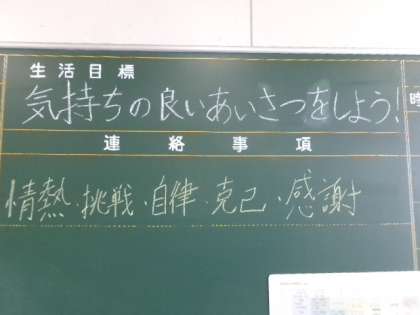 生活目標
気持ちの良いあいさつをしよう!
時
連絡事項
情熱・挑戦・自律・克己・感謝